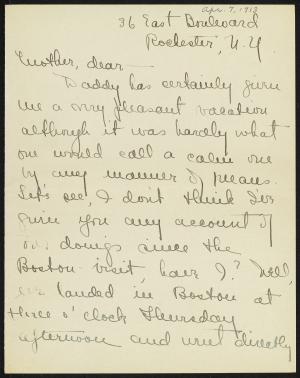 Apr. 7, 1913
36 East Boulevard
Rochester, N.Y.
Mother, dear —
Daddy has certainly given
me a very pleasant vacation
although it was hardly what
one would call a calm one
by any manner of means.
Let's see, I don't think I've
given you any account of
our doings since the
Boston visit, have I? Well,
we landed in Boston at
three o'clock Thursday
afternoon and went directly